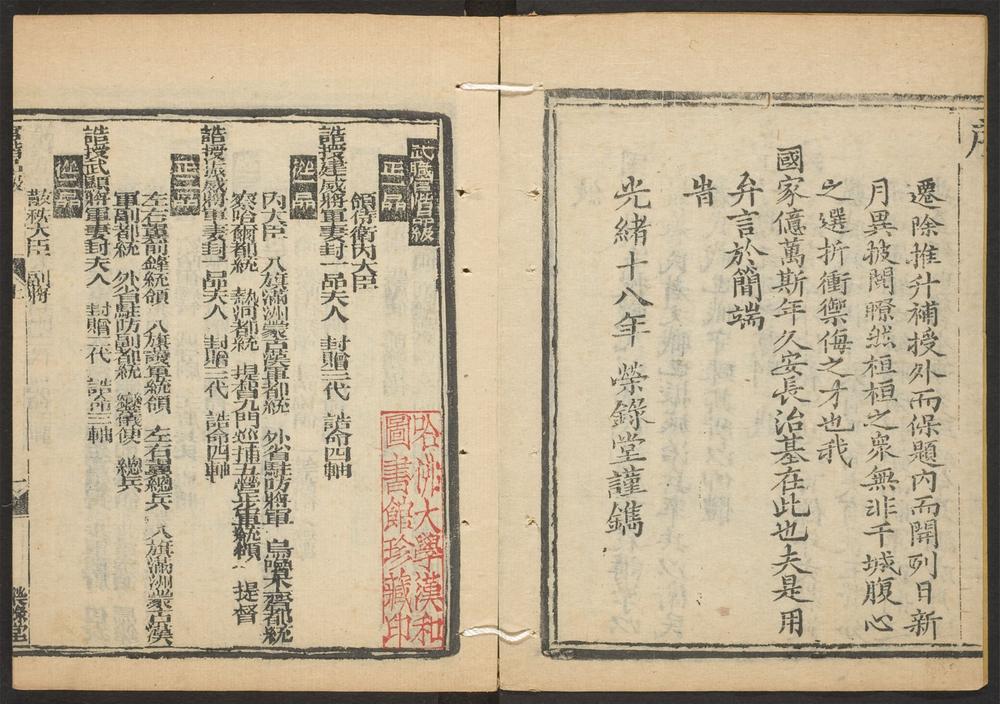 遷除推升補授外而保題內而開列日新
月異披閱瞭然桓桓之衆無非干城腹心
之選折衝禦侮之才也我
國家億萬斯年久安長治基在此也夫是用
弁言於簡端
旹
光緒十八年 榮錄堂謹鐫
武職官階品級
正一品
領侍衛內大臣
誥授建威將軍妻封一品夫人 封贈三代 誥命四軸
從一品
內大臣 八旗滿洲蒙古漢軍都統 外省駐防將軍 烏魯木齊都統
察哈爾都統 熱河都統 提督九門巡捕五營步軍統領 提督
誥授振威將軍妻封一品夫人 封贈三代 誥命四軸
正二品
左右翼前鋒統領 八旗護軍統領 左右翼總兵 八旗滿洲蒙古漢
軍副都統 外省駐防副都統 鑾儀使 總兵
誥授武顯將軍妻封夫人 封贈二代 誥命三軸
從二品
散秩大臣 副將
榮錄堂
哈佛大學漢和
圖書館珍藏印